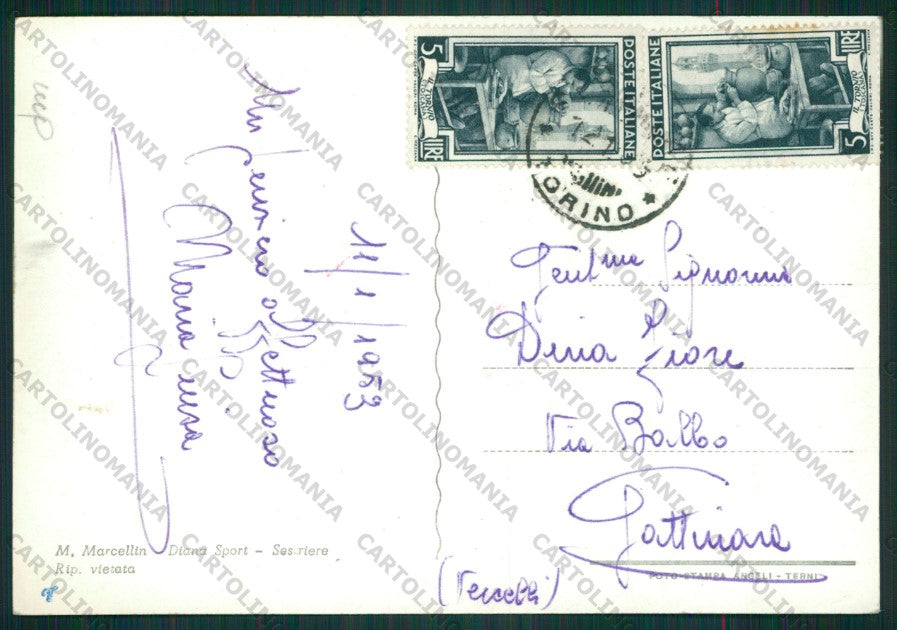 5 LIRE
IL TORNIO
POSTE ITALIANE
POSTE ITALIANE
IL TORNIO
5 LIRE
TORINO
11/1/1953
Un pensiero affettuoso
Maria Luisa
Gent.ma Signorina
Dina Fiore
Via Balbo
Gattinara
(Vercelli)
M. Marcellin Diana Sport - Sestriere
Rip. vietata
FOTO-STAMPA ANGELI - TERNI
CARTOLINOMANIA